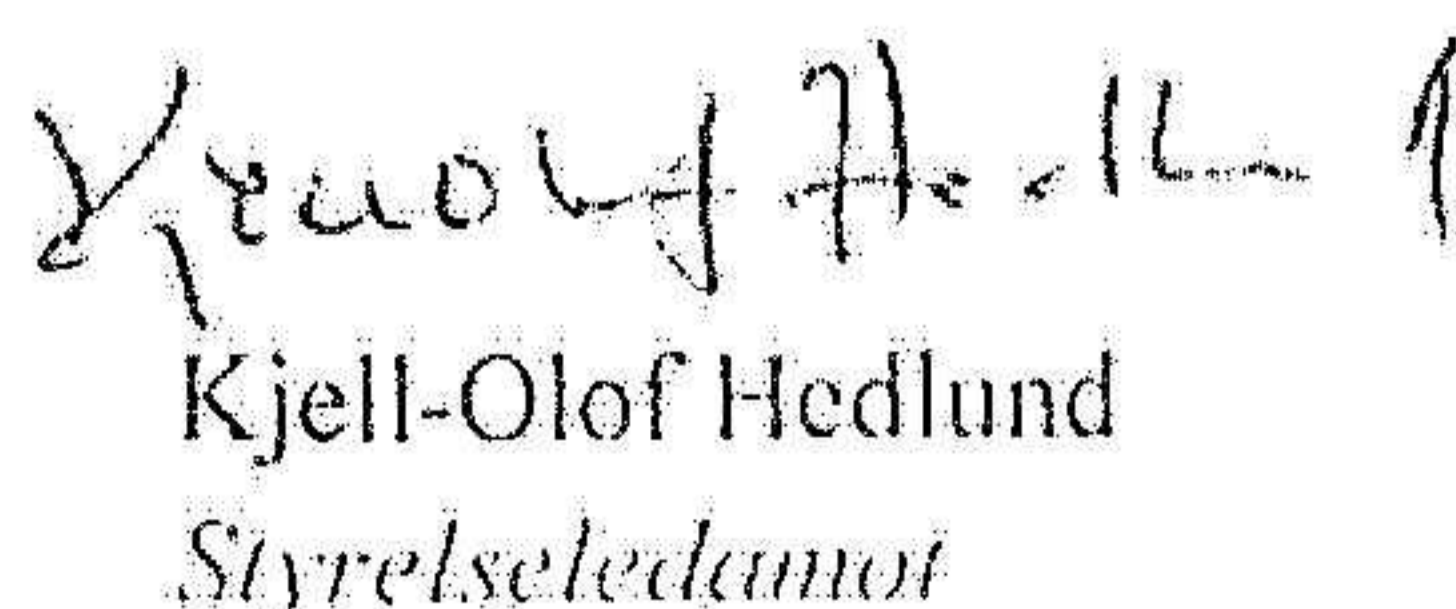 Kjell-Olof Hedlund
Styrelseledamot